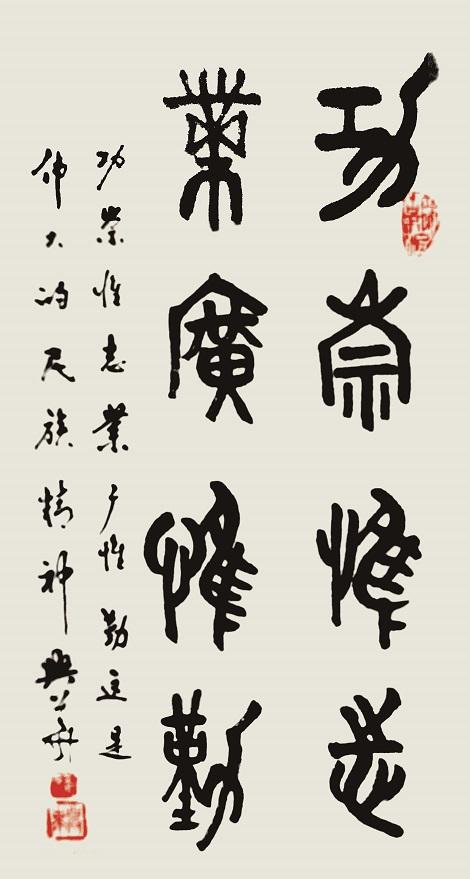 功崇惟志
業廣惟勤
功崇惟志業广惟勤這是
伟大的民族精神